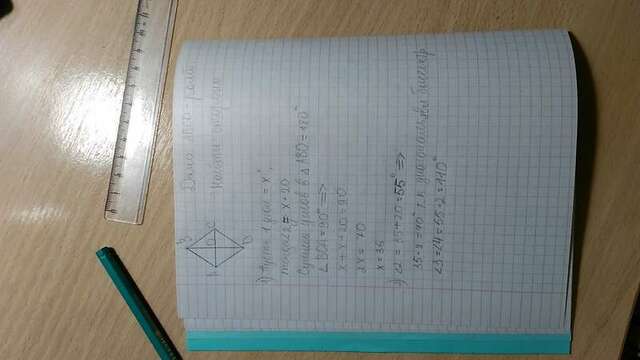 B
A O C
D
Дано ABCD - ромб
Найти стороны
1) Пусть 1 угол = x°,
тогда 2 = x+20
Сумма углов в △ABO = 180°
∠BOA = 90° =>
x + x + 20 = 90
2x = 70
x = 35
2) ∠2 = 35+20 = 55° =>
35·2 = 70° т.к диагональ явл биссектр
∠3 = ∠4 = 55·2 = 110°